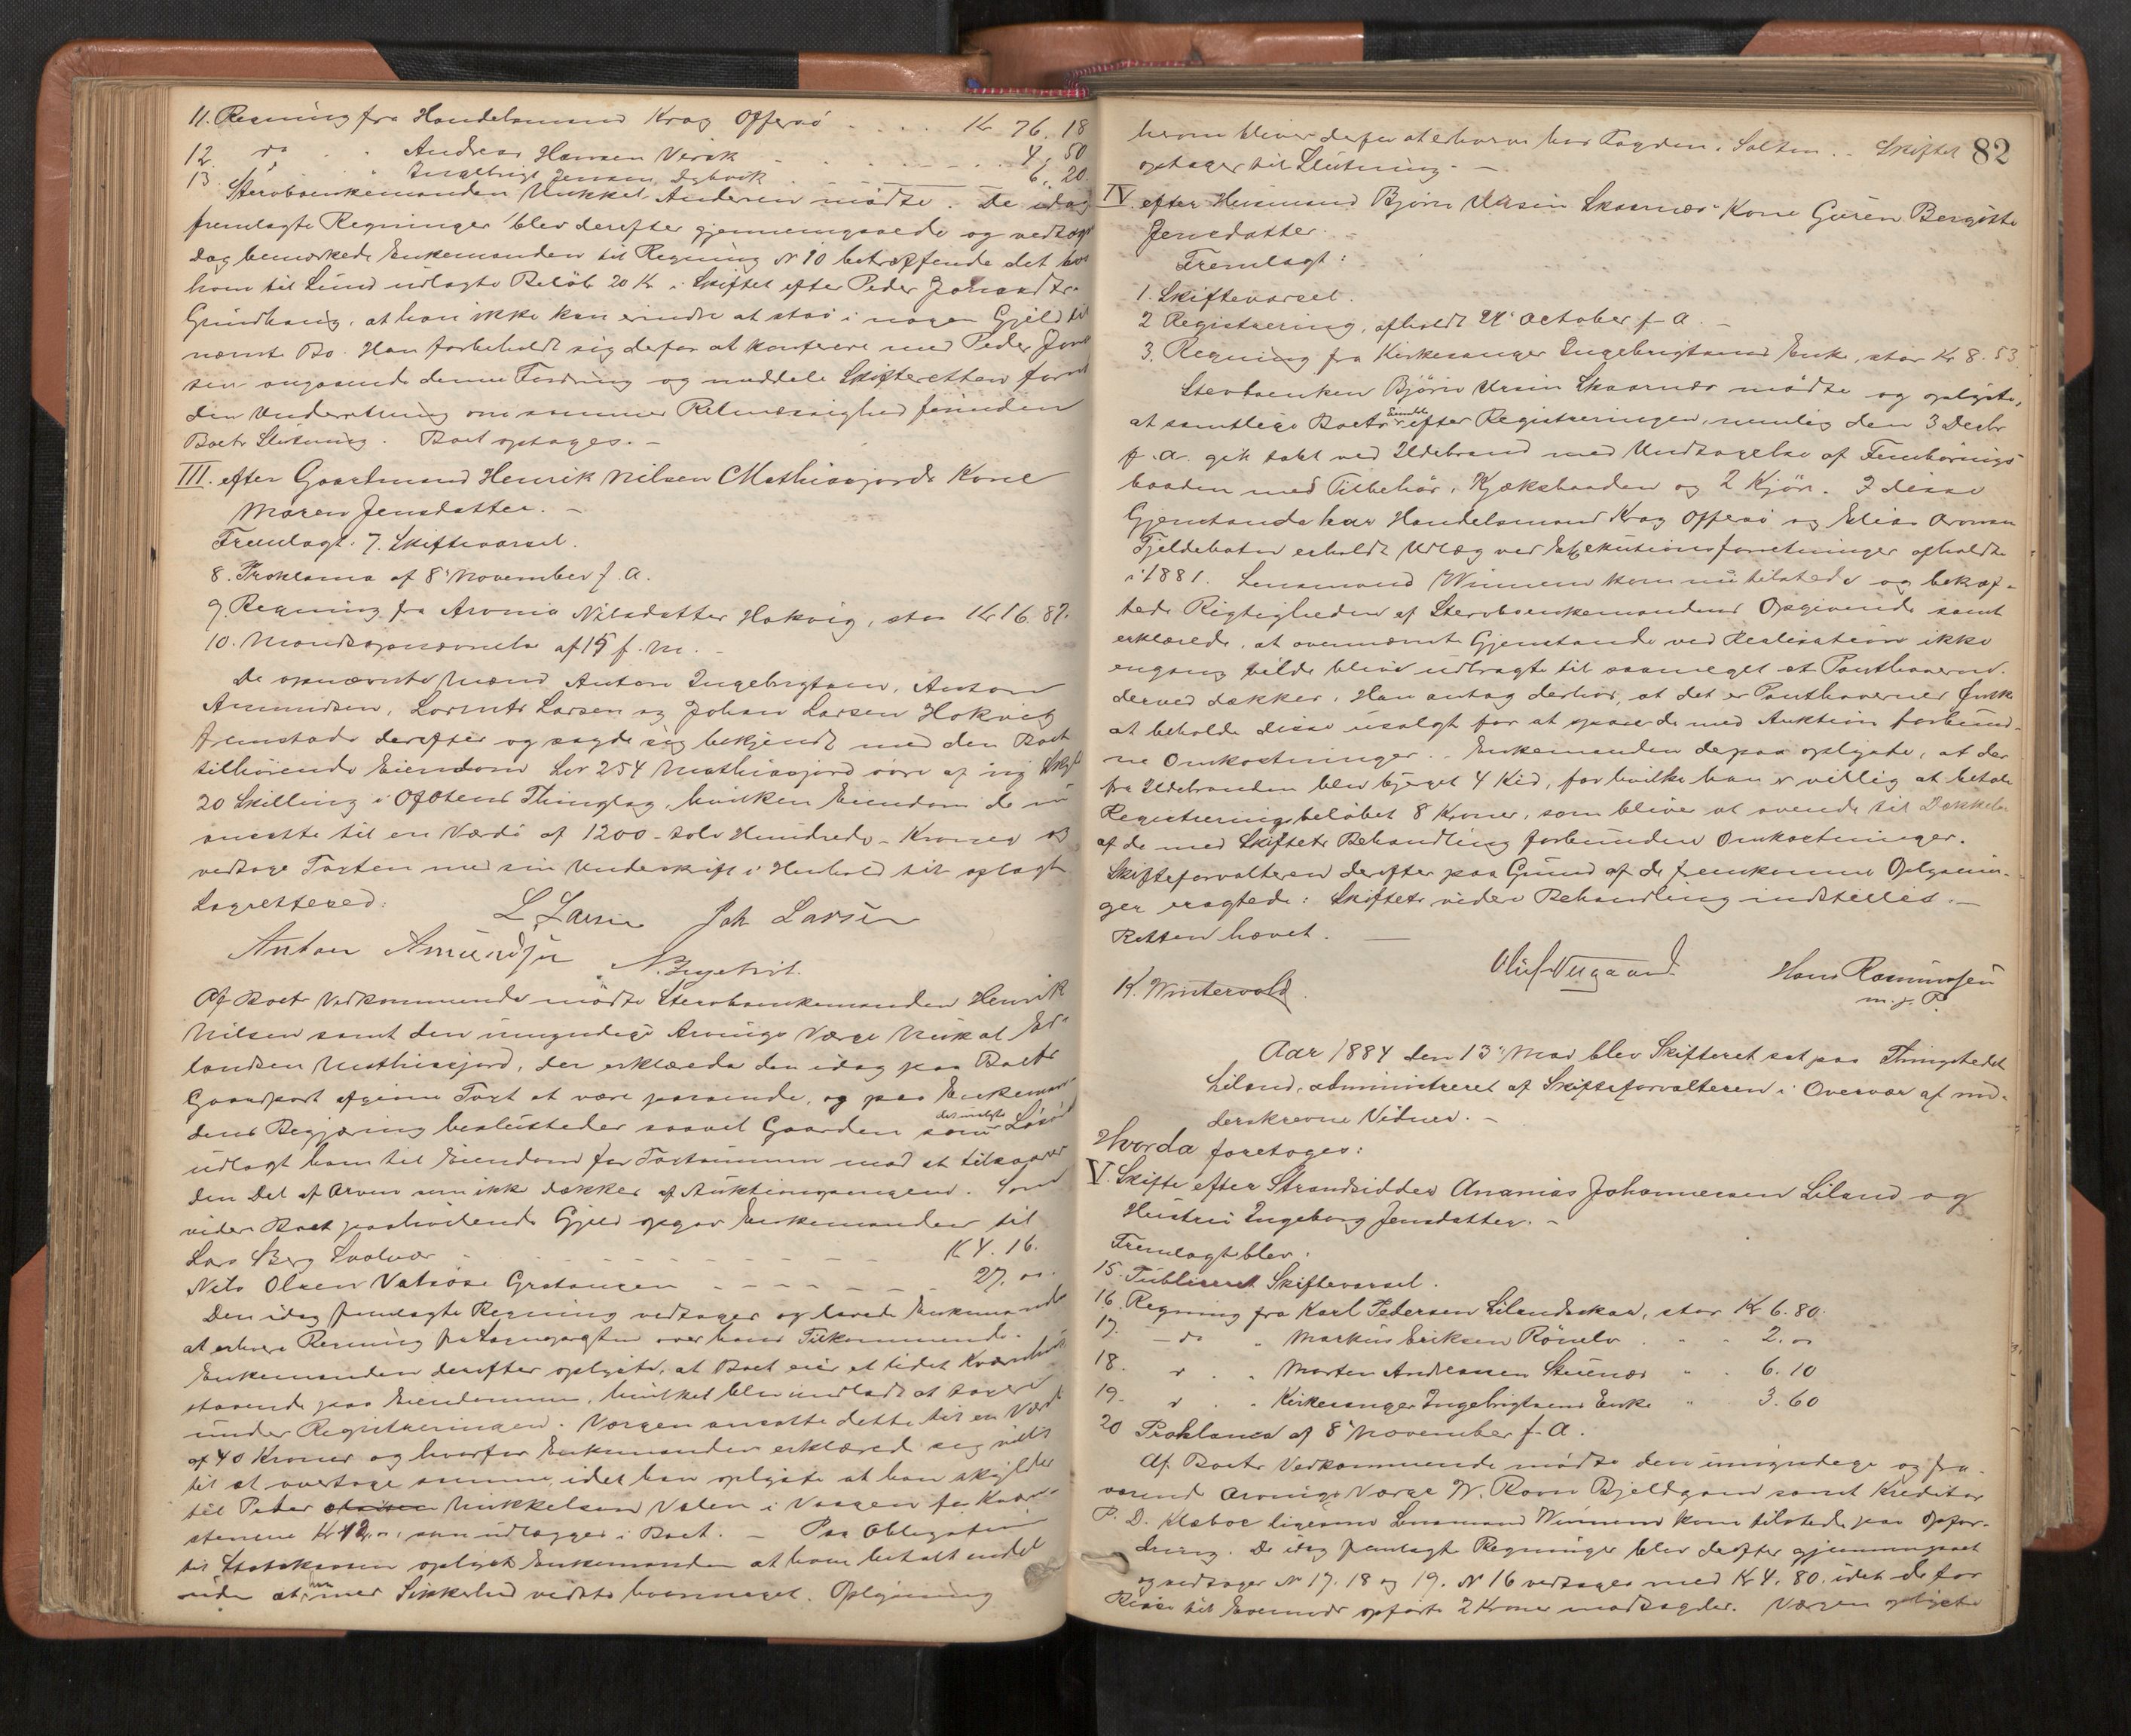 11. Regning fra Handelsmand Krag Offersö . . . . Kr 76. 18
12. do . . Andreas Hansen Virak . . . . . . . . 4, 50
13. " Ingebrigt Jensen Dybvik . . . . 6, 20.
Stervboenkemanden Mikkel Andersen mödte. De idag
fremlagte Regninger blev derefter gjennemgaaede og vedtaget
dog bemærkede Enkemanden til Regning No 10 betræffende det hos
ham til Lund udlagte Belöb 20 Kr. i Skiftet efter Peder
Grundhaug, at han ikke kan erindre at staa i nogen Gjeld til
nævnte Bo. Han forbeholdt sig derfor at konferere med Peder
sen angaaende denne Fordring og meddele Skifteretten
den Underretning om sammes Retmæssighed forinden
Boets Slutning. Boet optages. –
III. efter Gaardmand Henrik Nilsen Mathisfjords Kone
Maren Jensdatter. –
Fremlagt. 7. Skiftevarsel.
8. Proklama af 8 November f. A.
9. Regning fra Aronia Nilsdatter Hokvig, stor Kr 16. 87.
10. Mandsopnævnelse af 15 f. M. –
De opnævnte Mænd Anton Ingebrigtsen, Anton
Amundsen, Lorents Larsen og Johan Larsen Hokvig
fremstode derefter og sagde sig bekjendt med den Boet
tilhörende Eiendom Lör 254 Mathisfjord övre af ny Skyld
20 Skilling i Ofotens Thinglag, hvilken Eiendom de nu
ansatte til en Værdi af 1200 – tolv Hundrede – Kroner og
vedtage Taxten med sin Underskrift i Henhold til aflagt
Lagrettesed:
L. Larsen Joh Larsen
Anton Amundsen A. Ingebrit.
Af Boets Vedkommende mödte Stervboenkemanden Henrik
Nilsen samt den umyndige Arvings Værge Mikal
landsen Mathisfjord, der erklærede den idag paa Boets
Gaardpart afgivne Taxt at være passende, og paa Enkeman-
dens Begjæring besluttedes saavel Gaarden som det meste Lösöre
udlagt ham til Eiendom for Taxtsummen mod at tilsvare
den Del af Arven som ikke dækkes af Auktionspengene. Som
videre Boet paahvilende Gjeld opgav Enkemanden til
Lars Berg Svolvær . . . . . . . . K 4. 16.
Nils Olsen Gratangen . . . . . 27. "
Den idag fremlagte Regning vedtages og lovede Enkemanden
at erhverve Regning fra over hans Tilkommende.
Enkemanden derefter oplyste, at Boet eier et lidet
staaende paa Eiendommen, hvilket blev undladt at tagere
under Registreringen. Værgen ansatte dette til en Værd
af 40 Kroner og hvorfor Enkemanden erklærede sig villig
til at overtage samme, idet han oplyste at han skylder
til Peder Mikkelsen Valen i Vaagen for
stenene Kr 12, " som udlægges i Boet. – Paa Obligation
til Statskassen oplyste Enkemanden at have betalt endel
uden at han med Sikkerhed vidste hvormeget. Oplysning
82
herom bliver derfor at erhverve hos Fogden i Salten. – Skiftet
optages til Slutning. –
IV efter Huusmand Björn Ursin Skaarnæs' Kone Guren Bergitte
Jensdatter. –
Fremlagt:
1. Skiftevarsel.
2 Registrering, afholdt 24 October f. A. –
3. Regning fra Kirkesanger Ingebrigtsens Enke, stor Kr 8. 53.
Stervboenken Björn Ursin Skaarnæs mödte og oplyste,
at samtlige Boets Eiendele efter Registreringen, nemlig den 3 Decbr
f. A. gik tabt ved Ildebrand med Undtagelse af Femböring-
baaden med Tilbehör, Kjæksbaaden og 2 Kjör. I disse
Gjenstande har Handelsmand Krag Offersö og Elias Aronsen
Fjeldebotn erholdt Udlæg ved Exekutionsforretninger afholdte
i 1881. Lensmand Winnem kom nu tilstede og bekræf-
tede Rigtigheden af Stervboenkemandens Opgivende samt
erklærede, at ovennævnte Gjenstande ved Realisation ikke
engang vilde blive udbragte til saameget at Panthaverne
derved dækkes. Han antog derhos, at det er Panthavernes Önske
at beholde disse usolgt for at spare de med Auktion forbund-
ne Omkostninger. Enkemanden derpaa oplyste, at der
fra Ildebranden blev bjerget 4 Kid, for hvilke han er villig at betale
Registreringsbelöbet 8 Kroner, som bliver at anvende til Dækkelse
af de med Skiftets Behandling forbundne Omkostninger.
Skifteforvalteren derefter paa Grund af de fremkomne Oplysnin-
ger eragtede: Skiftets videre Behandling indstilles. –
Retten hævet. –
K. Wintervold. Oluf Nergaard Hans Rasmussen
m. p. P.
Aar 1884 den 13 Mai blev Skifteret sat paa Thingstedet
Liland, administreret af Skifteforvalteren i Overvær af un-
derskrevne Vidner. –
Hvorda foretoges:
V. Skifte efter Strandsidder Ananias Johannessen Liland og
Hustru Ingeborg Jensdatter. –
Fremlagt blev:
15. Publiceret Skiftevarsel.
16. Regning fra Karl Pedersen Lilandskar, stor Kr 6. 80.
17. – do " Markus Eriksen . " . 2. "
18. " . . Morten Andreassen " . 6. 10
19. " . . Kirkesanger Ingebrigtsens Enke " 3. 60
20 Proklama af 8 November f. A.
Af Boets Vedkommende mödte den umyndige og fra-
værende Arvings Værge W. Ravn Bjeldgam samt Kreditor
P. D. Klæboe ligesom Lensmand Winnem kom tilstede paa Opfor-
dring. De idag fremlagte Regninger blev derefter gjennemgaaet
og vedtages No 17. 18 og 19. No 16 vedtages med Kr 4. 80. idet de for
Reise til Evenæs opförte 2 Kroner modsagdes. Værgen oplyste